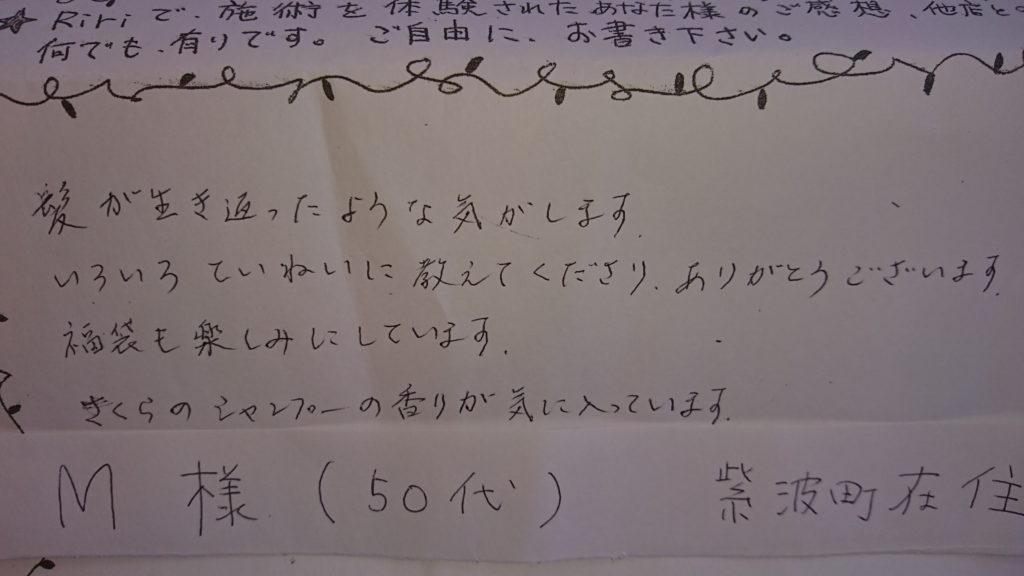 ★ Ririで、施術を体験されたあなた様のご感想、他店と
何でも、有りです。ご自由に、お書き下さい。
髪が生き返ったような気がします.
いろいろていねいに教えてくださり、ありがとうございます.
福袋も楽しみにしています.
さくらのシャンプーの香りが気に入っています.
M 様 (50代) 紫波町在住